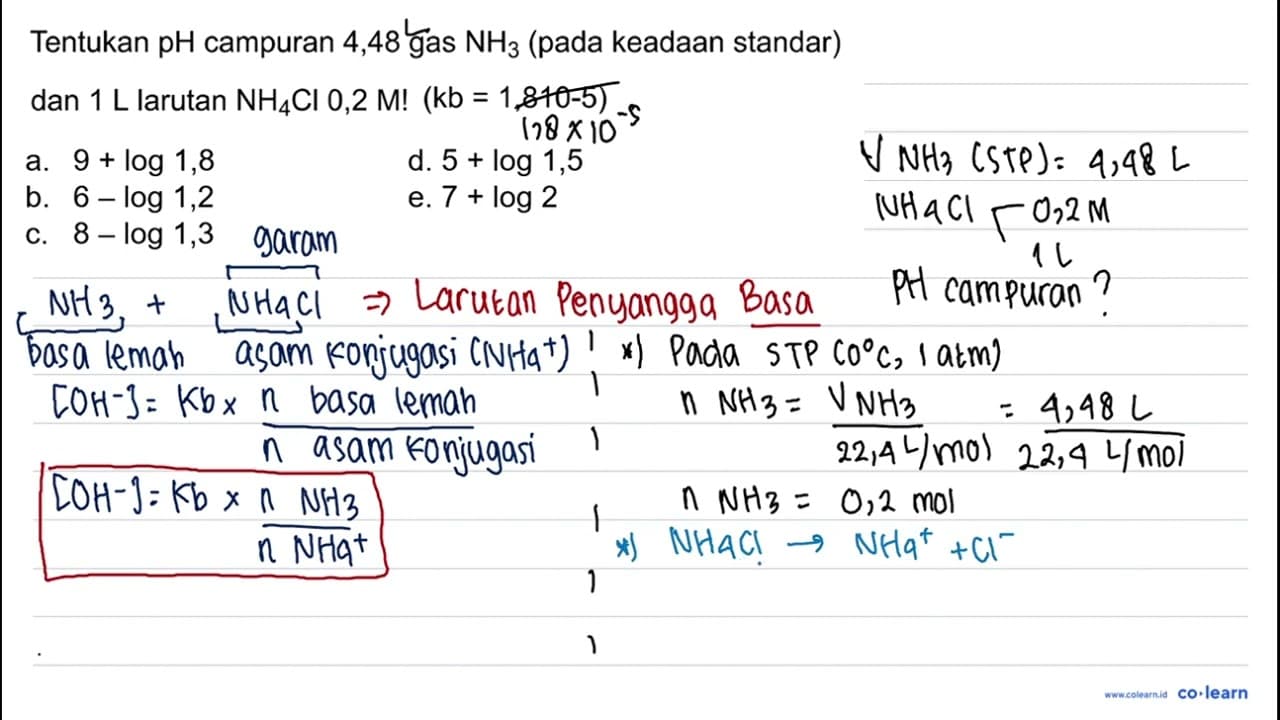 Tentukan pH campuran 4,48 L gas NH₃ (pada keadaan standar)
dan 1 L larutan NH₄Cl 0,2 M! (kb = 1,810-5)
1,8 x 10⁻⁵
a. 9 + log 1,8
b. 6 – log 1,2
c. 8 – log 1,3
d. 5 + log 1,5
e. 7 + log 2
V NH3 (STP) = 4,48 L
NH4Cl 0,2 M
1 L
PH campuran ?
garam
NH3 + NH4Cl ⇒ Larutan Penyangga Basa
basa lemah asam konjugasi (NH4⁺)
[OH⁻] = Kb x n basa lemah
n asam konjugasi
[OH⁻] = Kb x n NH3
n NH4⁺
*) Pada STP (0°C, 1 atm)
n NH3 = V NH3 = 4,48 L
22,4 L/mol 22,4 L/mol
n NH3 = 0,2 mol
*) NH4Cl → NH4⁺ + Cl⁻
www.colearn.id co·learn